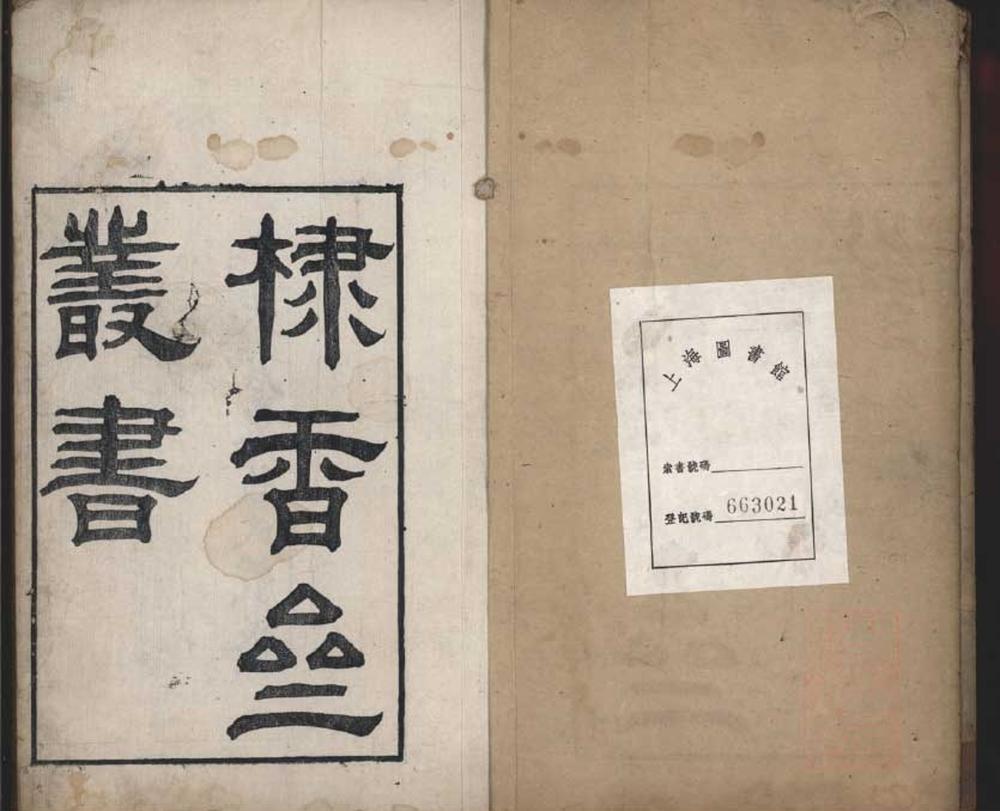 上海圖書館
索書號碼
登記號碼 663021
棣香亝
叢書